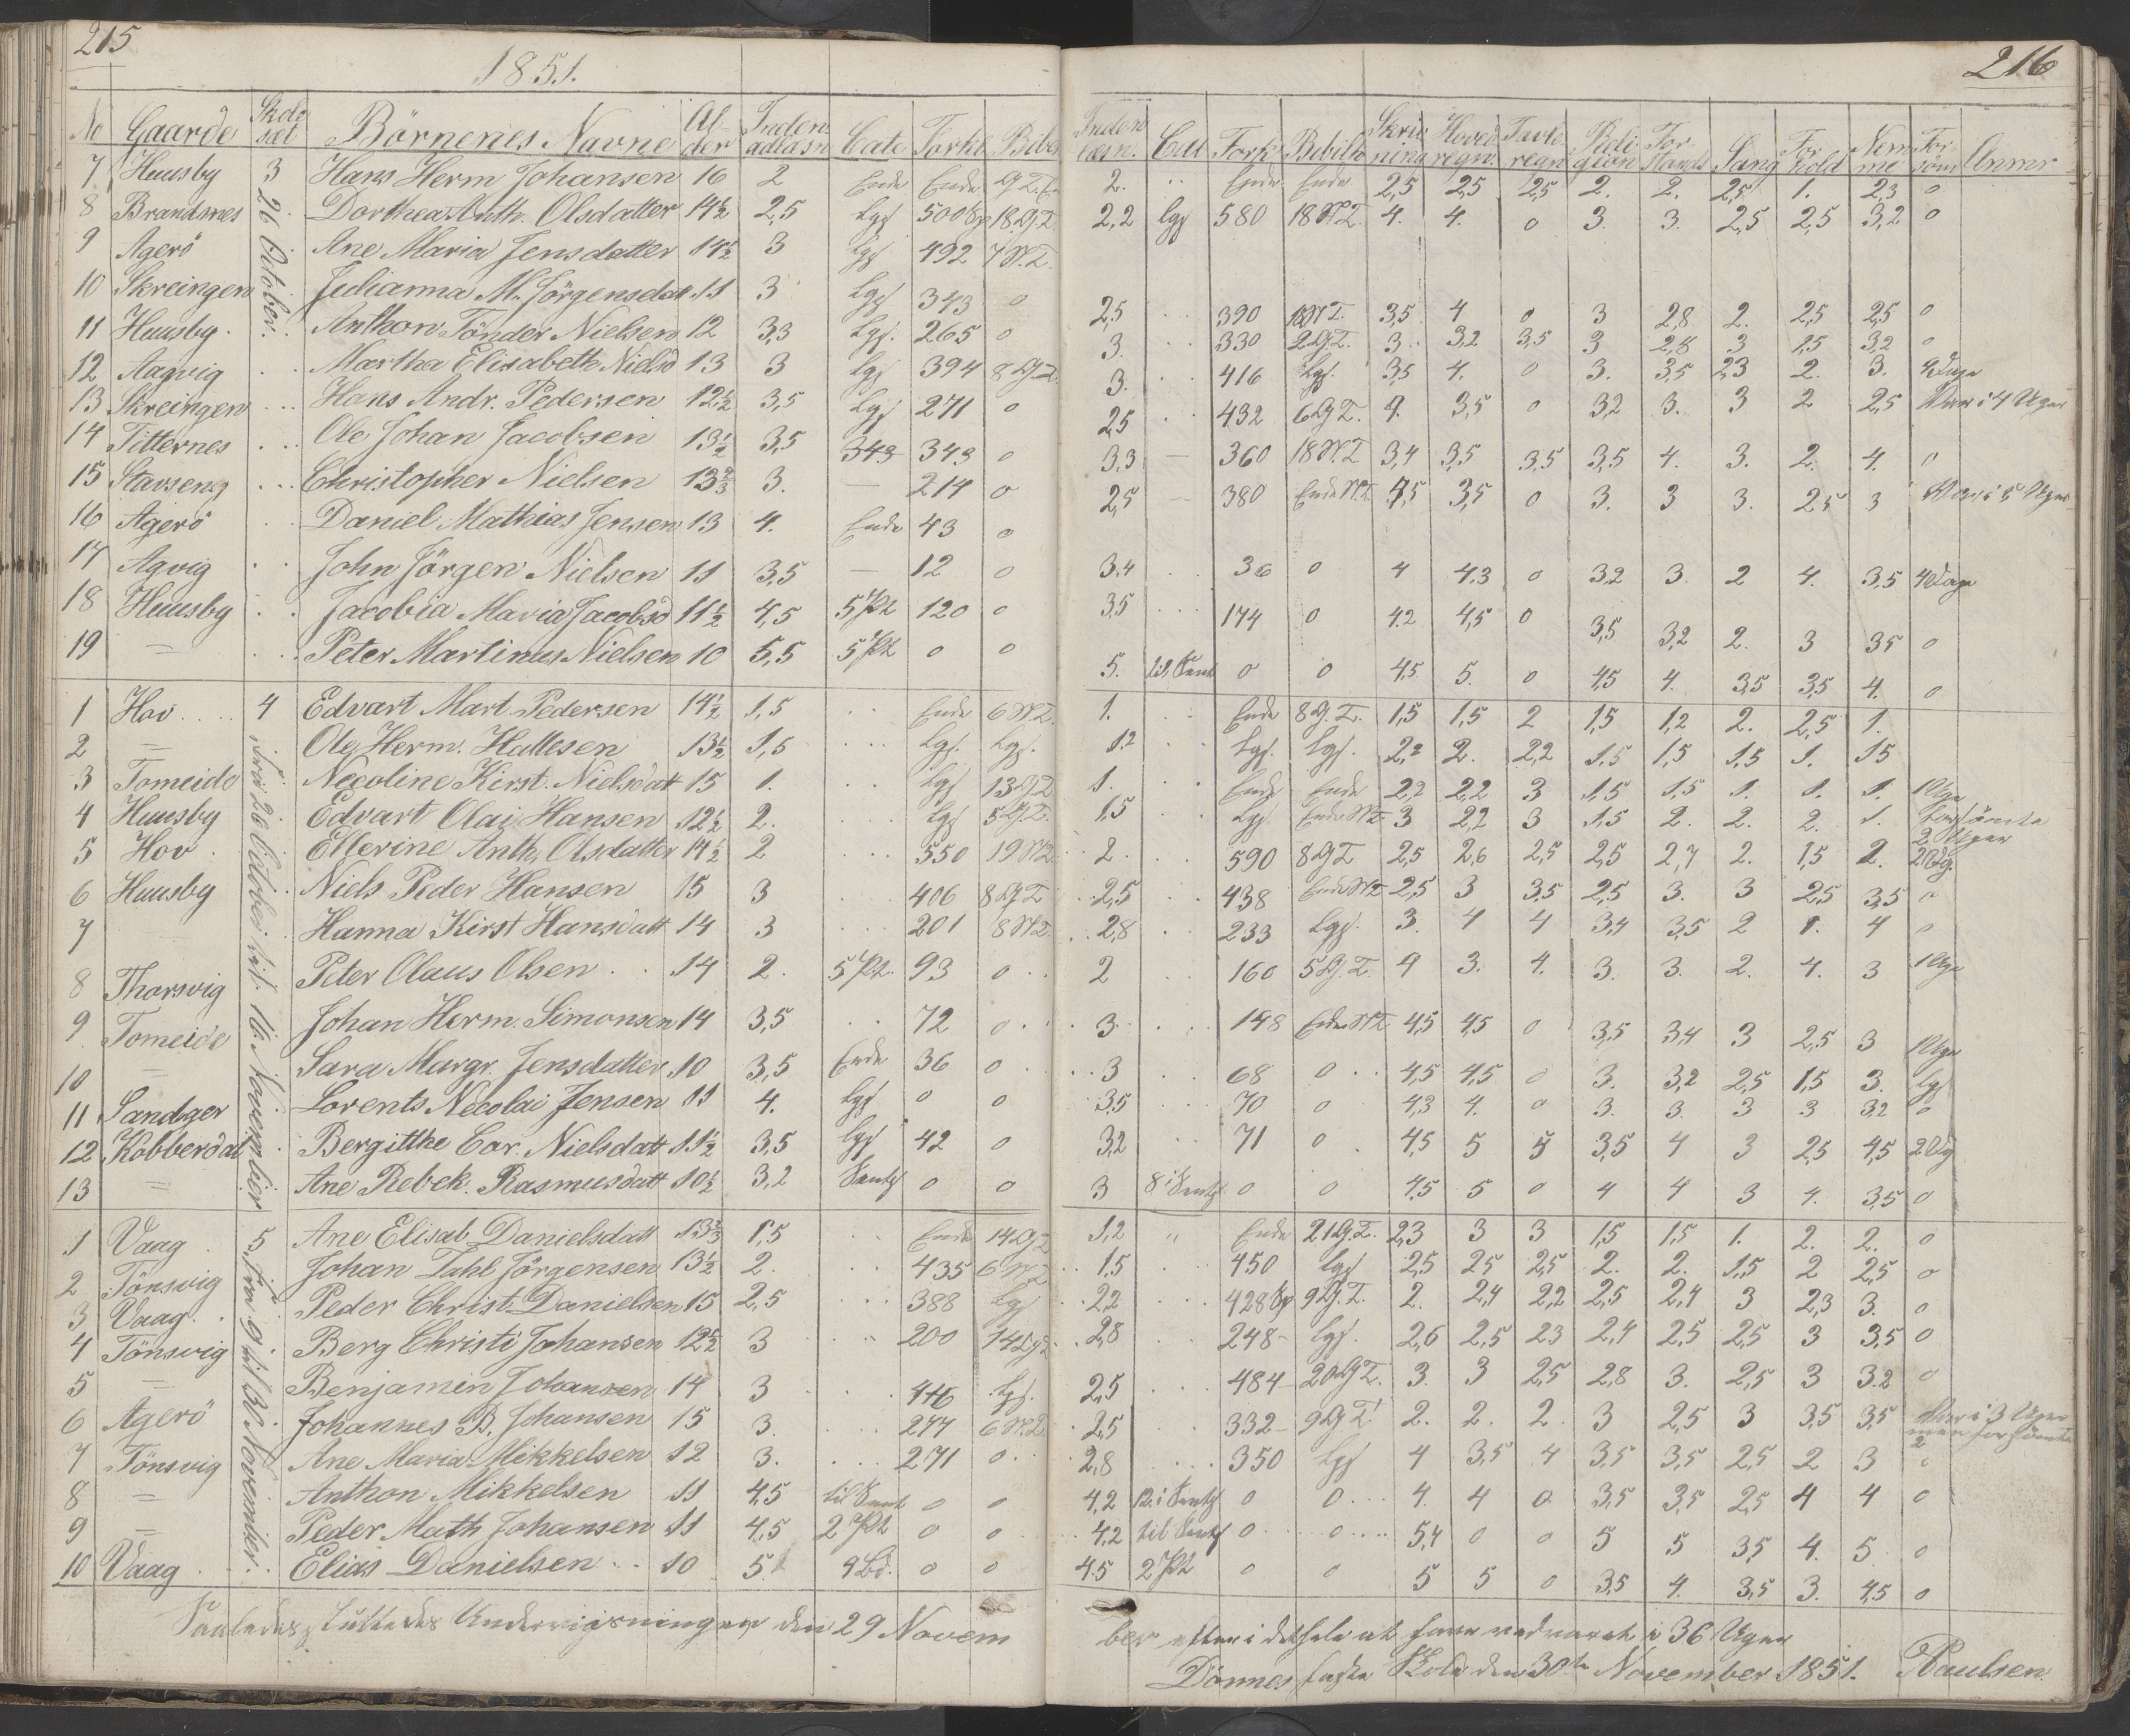 215
1851.
No Gaarde Skole sæt Börnenes Navne Alder Inden adlæsn Cate Forkl Bibel
7 Huusby 3 Hans Herm Johansen 16 2 Ende Ende
8 Brandsnes Dorthea Anth. Olsdatter 14½ 2,5 Lgs 500 18.G.T.
9 Agerö Ane Maria Jensdatter 14½ 3 Lgs 492 7 N.T.
10 Skreingen Julianna M. Jörgensdat 11 3 Lgs 343 0
11 Huusby. Anthon Tönder Nielsen 12 3,3 Lgs. 265 0
12 Aagvig Martha Elisabeth Nielsd 13 3 Lgs 394 8 G.T.
13 Skreingen Hans Andr. Pedersen 12½ 3,5 Lgs 271 0
14 Titternes Ole Johan Jacobsen 13½ 3,5 343 343 0
15 Stavseng Christopher Nielsen 13⅔ 3. — 214 0
16 Agerö Daniel Mathias Jensen 13 4. Ende 43 0
17 Agvig John Jörgen Nielsen 11 3,5 — 12 0
18 Huusby Jacobia Maria Jacobsd 11½ 4,5 5 Pt 120 0
19 = Peter Martinus Nielsen 10 5,5 5 Pt 0 0
26 October.
1 Hov 4 Edvart Mart. Pedersen 14½ 1,5 Ende 6 N.T.
2 = Ole Herm. Hallesen 13½ 1,5 Lgs. Lgs.
3 Tomeide Necoline Kirst. Nielsdat 15 1. Lgs 13 G.T
4 Huusby Edvart Olai Hansen 12½ 2. Lgs 5 G.T.
5 Hov Ellerine Anth. Olsdatter 14½ 2 550 19 N.T.
6 Huusby Niels Peder Hansen 15 3 406 8 G.T
7 Hanna Kirst Hansdatt 14 3 201 8 N.T
8 Tharsvig Peter Olaus Olsen 14 2. 5 Pt. 93 0
9 Tomeide Johan Herm. Simonsen 14 3,5 72 0
10 = Sara Margr. Jensdatter 10 3,5 Ende 36 0
11 Sandger Lorents Necolai Jensen 11 4. Lgs 0 0
12 Kobberdal Bergitthe Car. Nielsdatt 11½ 3,5 Lgs 42 0
13 = Ane Rebek. Rasmusdatt 10½ 3,2 0 0
fra 26 October til 16. November
1 Vaag 5 Ane Elisab Danielsdatt 13⅔ 1,5 Ende 14 G.T
2 Tönsvig Johan Dahl Jörgensen 13½ 2. 435 6 N.T
3 Vaag. Peder Christ. Danielsen 15 2,5 388 Lgs
4 Tönsvig Berg Christi Johansen 12½ 3 200 14 G.T
5 = Benjamin Johansen 14 3 446 Lgs.
6 Agerö Johannes B. Johansen 15 3. 277 6 N.T.
7 Tönsvig Ane Maria Mikkelsen 12 3. 271 0
8 = Anthon Mikkelsen 11 4,5 0 0
9 = Peder Math Johansen 11 4,5 2 Pt 0 0
10 Vaag Elias Danielsen 10 5. 4 Bd. 0 0
fra 9 til 30 November.
Saaledes sluttedes Underviisningen den 29 Novem
216
Inden læsn. Cat Fork Bibelh Skriv ning Hoved regn. Tavle regn Reli gion For stand Sang For hold Nem me For sömt Anmr
2. Ende Ende 2,5 2,5 2,5 2. 2. 2,5 1. 2,3 0
2,2 lgs 580 18 N.T. 4. 4. 0 3. 3. 2,5 2,5 3,2 0
2,5 390 3,5 4 0 3 2,8 2. 2,5 2,5 0
3. 330 2 G.T. 3 3,2 3,5 3 2,8 3 1,5 3,2 0
3. 416 Lgs. 3,5 4. 0 3. 3,5 2,3 2. 3. 4 Dage
2,5 432 6 G.T. 4. 3,5 0 3,2 3. 3 2 2,5 Var i 4 Uger
3,3 — 360 18 N.T 3,4 3,5 3,5 3,5 4. 3. 2. 4. 0
2,5 — 380 Ende N.T 4,5 3,5 0 3. 3 3. 2,5 3 Var i 5 Uger
3,4 36 0 4 4,3 0 3,2 3. 2 4. 3,5 4 Dage
3,5 174 0 4,2 4,5 0 3,5 3,2 2. 3 3,5 0
5. 0 0 4,5 5. 0 4,5 4. 3,5 3,5 4. 0
1. Ende 8 G.T. 1,5 1,5 2 1,5 1,2 2. 2,5 1.
1,2 Lgs. Lgs. 2,2 2. 2,2 1,5 1,5 1,5 1. 1,5
1. Ende Ende 2,2 2,2 3 1,5 1,5 1. 1. 1. 1 Uge
1,5 Lgs Ende N.T 3 2,2 3 1,5 2. 2. 2. 1. forsömte 2 Uger
2 590 8 G.T 2,5 2,6 2,5 2,5 2,7 2. 1,5 2. 2 Ug.
2,5 438 Ende N.T 2,5 3 3,5 2,5 3. 3 2,5 3,5 0
2,8 233 Lgs. 3. 4 4 3,4 3,5 2 1. 4 0
2 160 5 G.T. 4 3. 4. 3. 3. 2. 4. 3 1 Uge
3 148 Ende N.T 4,5 4,5 0 3,5 3,4 3 2,5 3 1 Uge
3 68 0 4,5 4,5 0 3. 3,2 2,5 1,5 3. Lgs
3,5 70 0 4,3 4. 0 3. 3. 3 3 3,2 0
3,2 71 0 4,5 5 5 3,5 4 3 2,5 4,5 2 Ug
3 0 0 4,5 5 0 4 4 3 4. 3,5 0
1,2 " Ende 21 G.T. 2,3 3 3 1,5 1,5 1. 2. 2. 0
1,5 450 Lgs 2,5 2,5 2,5 2. 2. 1,5 2 2,5 0
2,2 428 9 G.T. 2. 2,4 2,2 2,5 2,4 3 2,3 3. 0
2,8 248 Lgs. 2,6 2,5 2,3 2,4 2,5 2,5 3 3,5 0
2,5 484 20 G.T. 3. 3 2,5 2,8 3. 2,5 3 3.2 0
2,5 332 9 G.T. 2. 2. 2. 3 2,5 3 3,5 3,5 Var i 3 Uger men forsömte 2
2,8 350 Lgs 4 3,5 4 3,5 3,5 2,5 2 3 0
4,2 0 0 4. 4 0 3,5 3,5 2,5 4 4 0
4,2 0 0 5,4 0 0 5 5 3,5 4. 5 0
4.5 2 Pt 0 0 5 5 0 3,5 4. 3,5 3. 4,5 0
ber efter i det hele at have vedvaret i 36 Uger
Dönnes faste Skole den 30te November 1851. Paulsen.